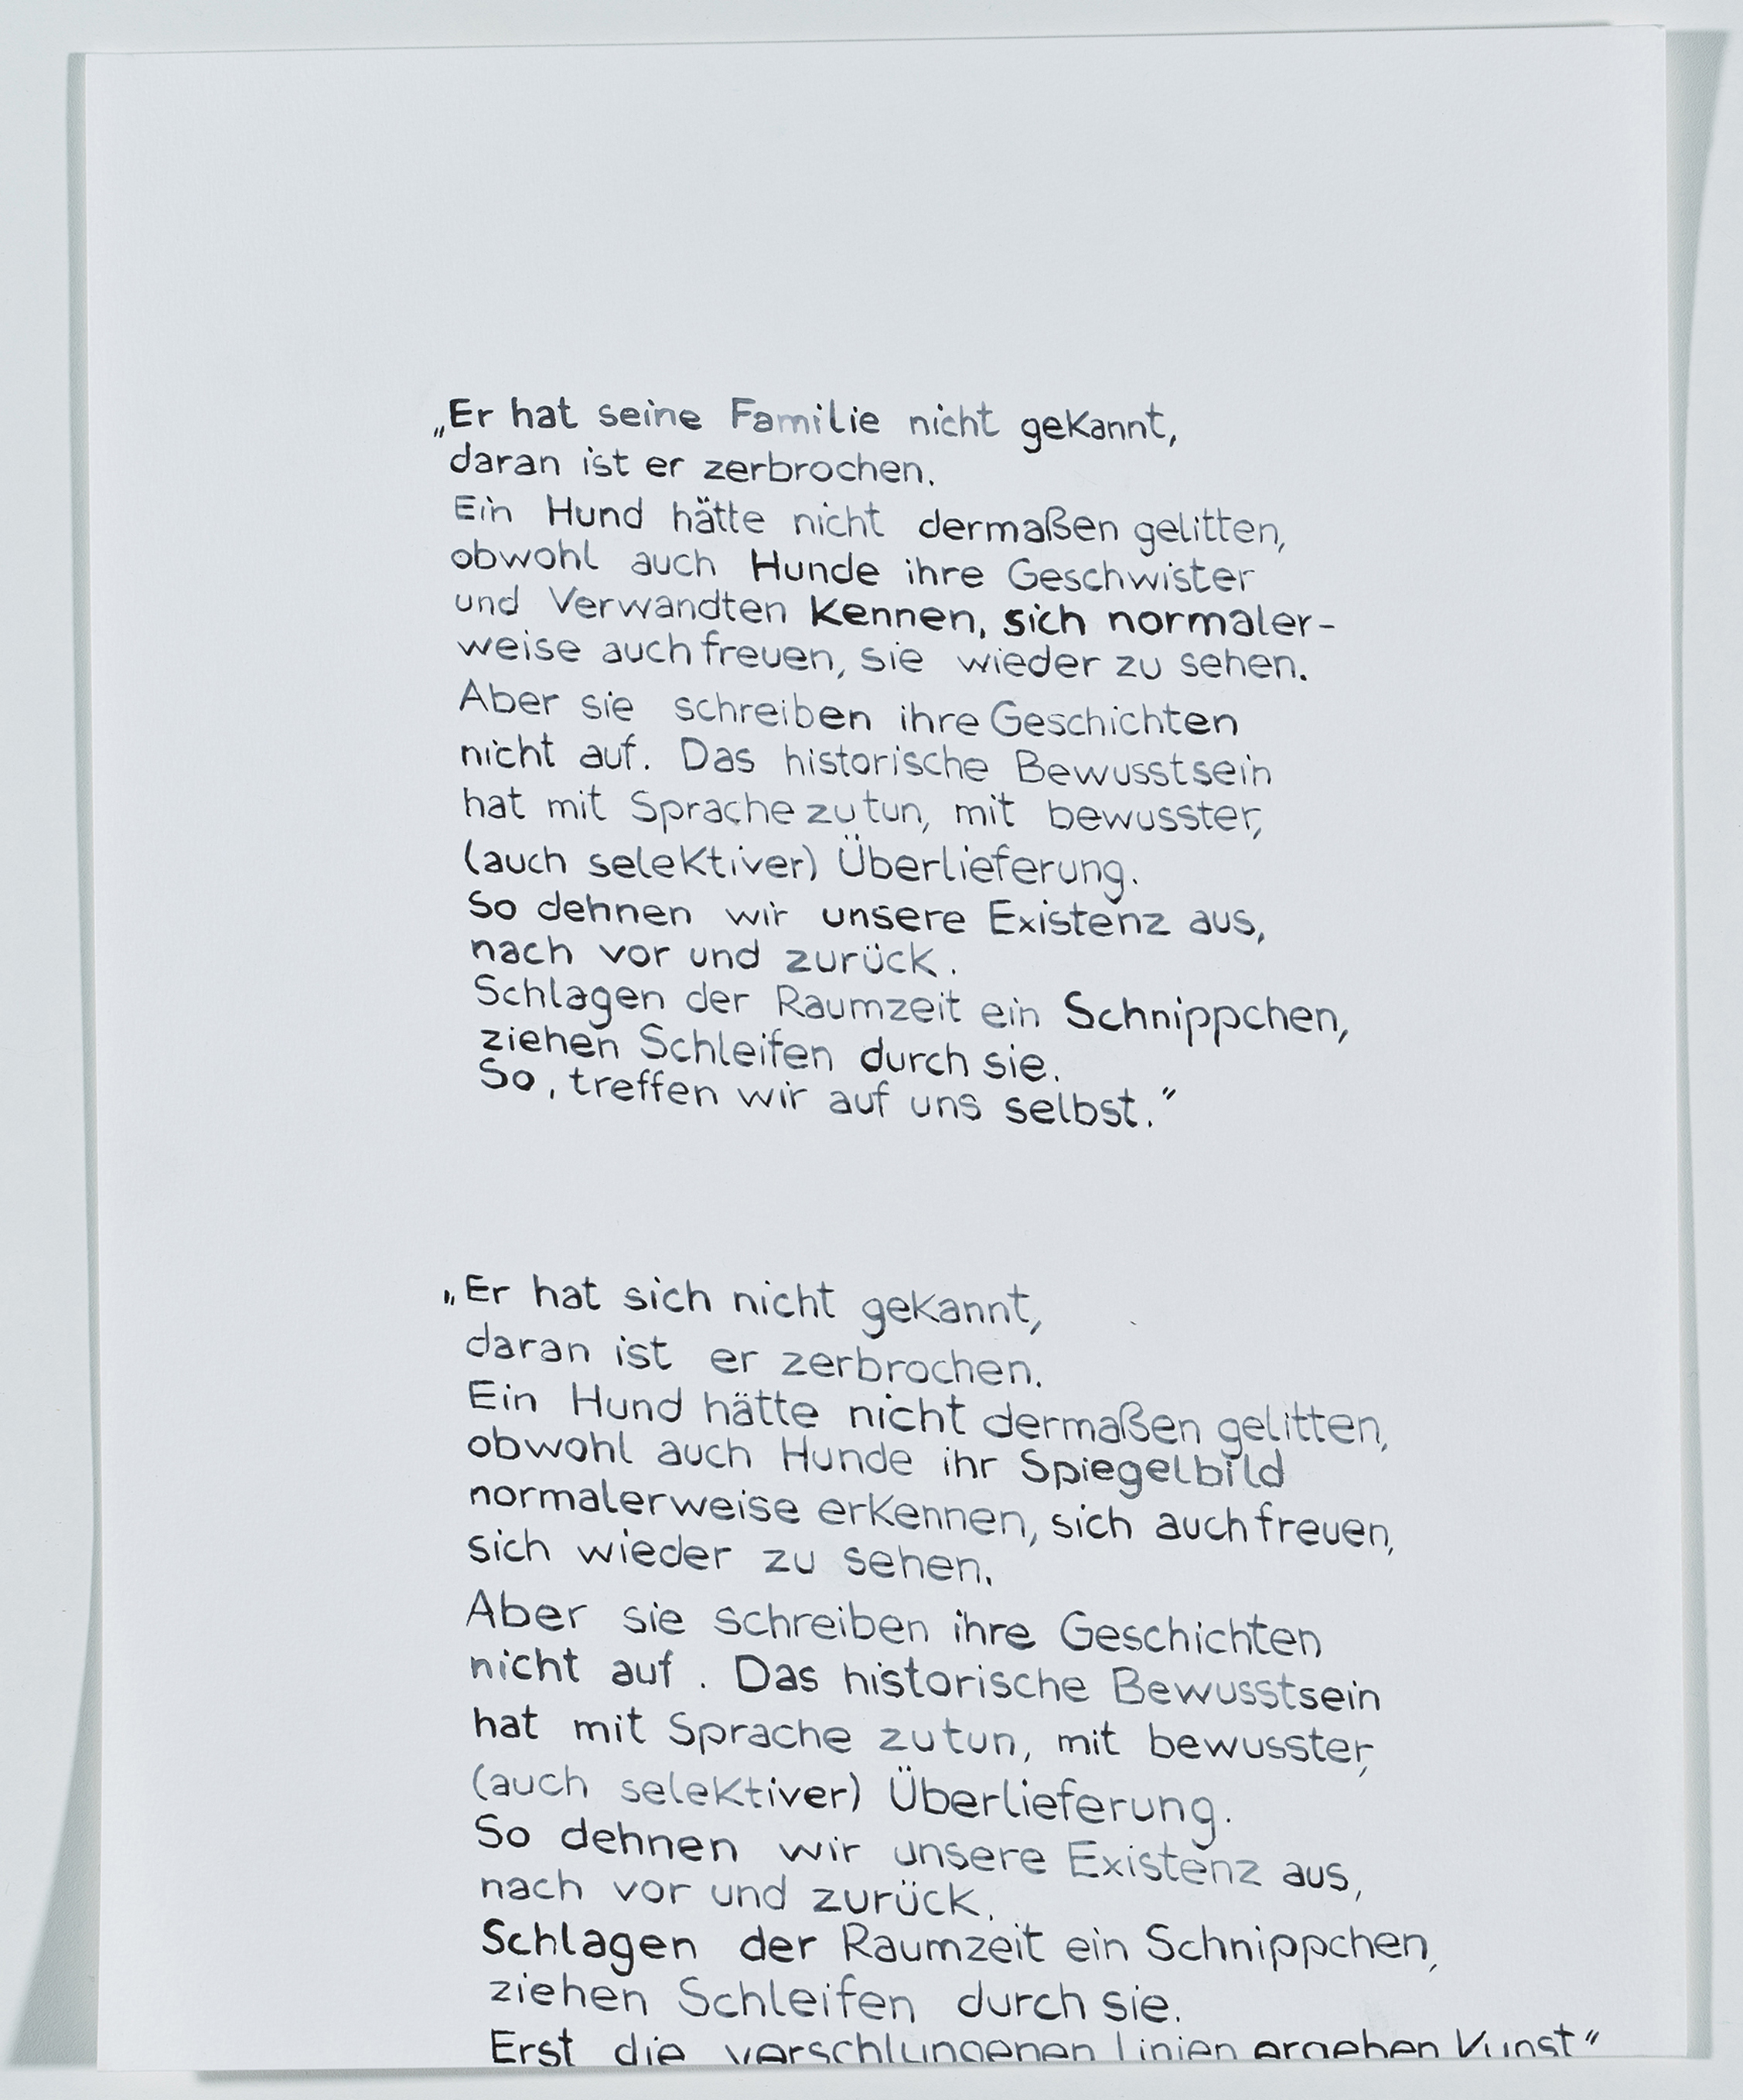 „Er hat seine Familie nicht gekannt,
daran ist er zerbrochen.
Ein Hund hätte nicht dermaßen gelitten,
obwohl auch Hunde ihre Geschwister
und Verwandten kennen, sich normaler-
weise auch freuen, sie wieder zu sehen.
Aber sie schreiben ihre Geschichten
nicht auf. Das historische Bewusstsein
hat mit Sprache zu tun, mit bewusster,
(auch selektiver) Überlieferung.
So dehnen wir unsere Existenz aus,
nach vor und zurück.
Schlagen der Raumzeit ein Schnippchen,
ziehen Schleifen durch sie.
So, treffen wir auf uns selbst.“
„Er hat sich nicht gekannt,
daran ist er zerbrochen.
Ein Hund hätte nicht dermaßen gelitten,
obwohl auch Hunde ihr Spiegelbild
normalerweise erkennen, sich auch freuen,
sich wieder zu sehen.
Aber sie schreiben ihre Geschichten
nicht auf. Das historische Bewusstsein
hat mit Sprache zu tun, mit bewusster,
(auch selektiver) Überlieferung.
So dehnen wir unsere Existenz aus,
nach vor und zurück.
Schlagen der Raumzeit ein Schnippchen,
ziehen Schleifen durch sie.
Erst die verschlungenen Linien ergeben Kunst“